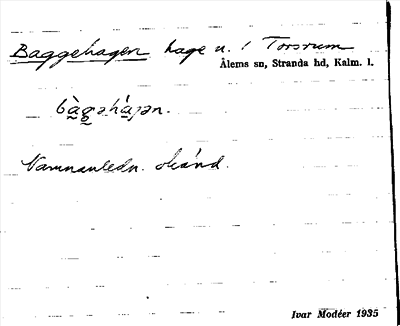 Baggehagen hage u. / Torsrum
Ålems sn, Stranda hd, Kalm. l.
bàg̲əhájən.
Namnanledn. okänd.
Ivar Modéer 1935